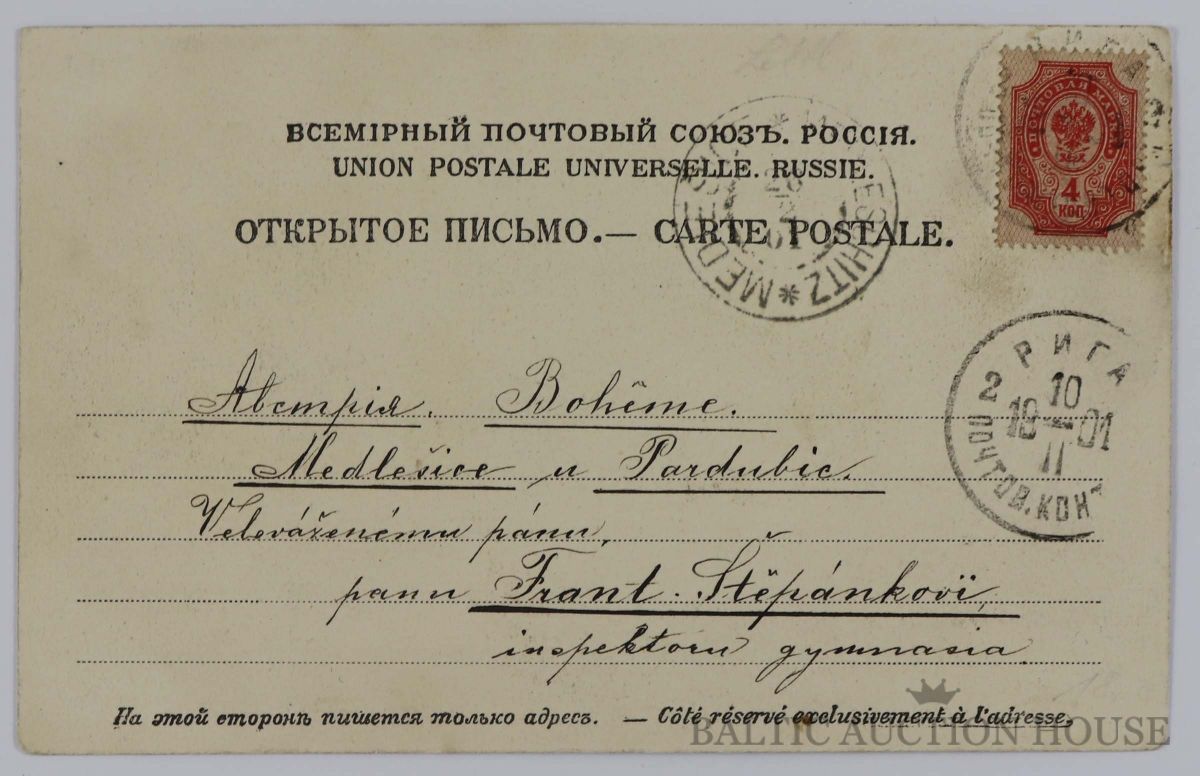 ВСЕМІРНЫЙ ПОЧТОВЫЙ СОЮЗЪ. РОССІЯ.
UNION POSTALE UNIVERSELLE. RUSSIE.
ОТКРЫТОЕ ПИСЬМО.— CARTE POSTALE.
ПОЧТОВАЯ МАРКА
4
КОП
MEDL ESCHITZ *
РИГА
2 10
18 — 01
II
ПОЧТОВ. КОНТ
Австрія. Bohême.
Medlešice u Pardubic.
Veleváženému pánu,
panu Frant. Štěpánkovi,
inspektoru gymnasia
На этой сторонѣ пишется только адресъ. — Côté réservé exclusivement à l'adresse.
BALTIC AUCTION HOUSE